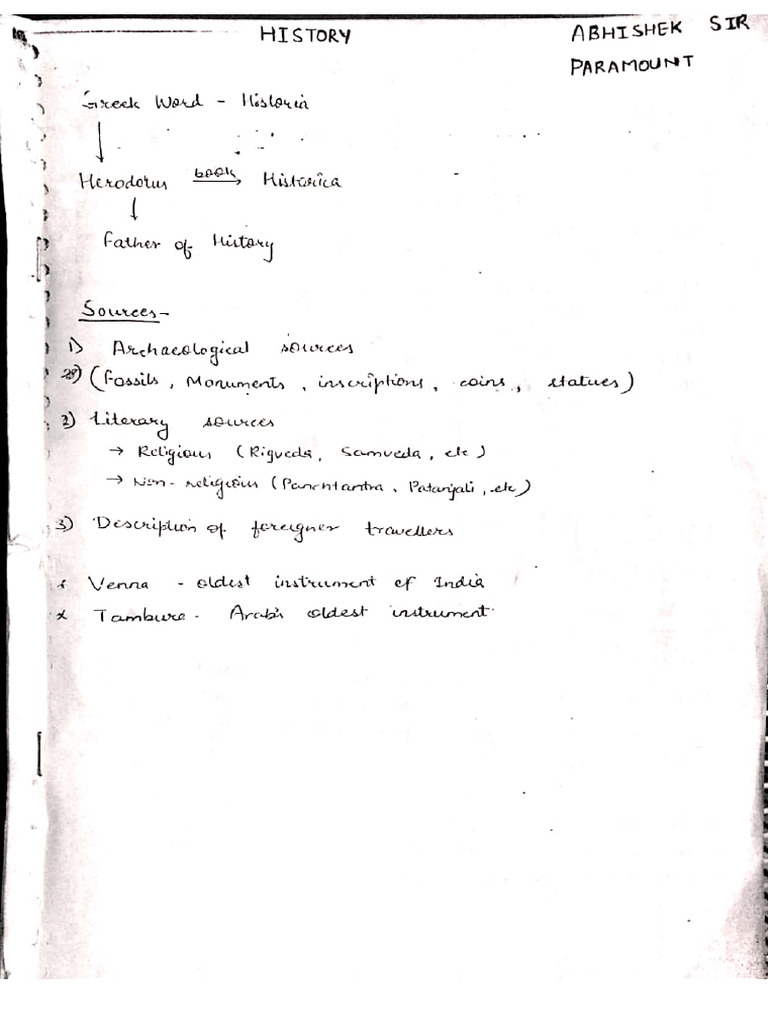 HISTORY
ABHISHEK SIR
PARAMOUNT
Greek Word - Historia
↓
Herodotus book → Historica
↓
Father of History
Sources-
1) Archaeological sources
(Fossils, Monuments, inscriptions, coins, statues)
2) Literary sources
→ Religious (Rigveda, Samveda, etc)
→ Non-religious (Panchtantra, Patanjali, etc)
3) Description of foreigner travellers
x Venna - oldest instrument of India
x Tambure - Arab's oldest instrument